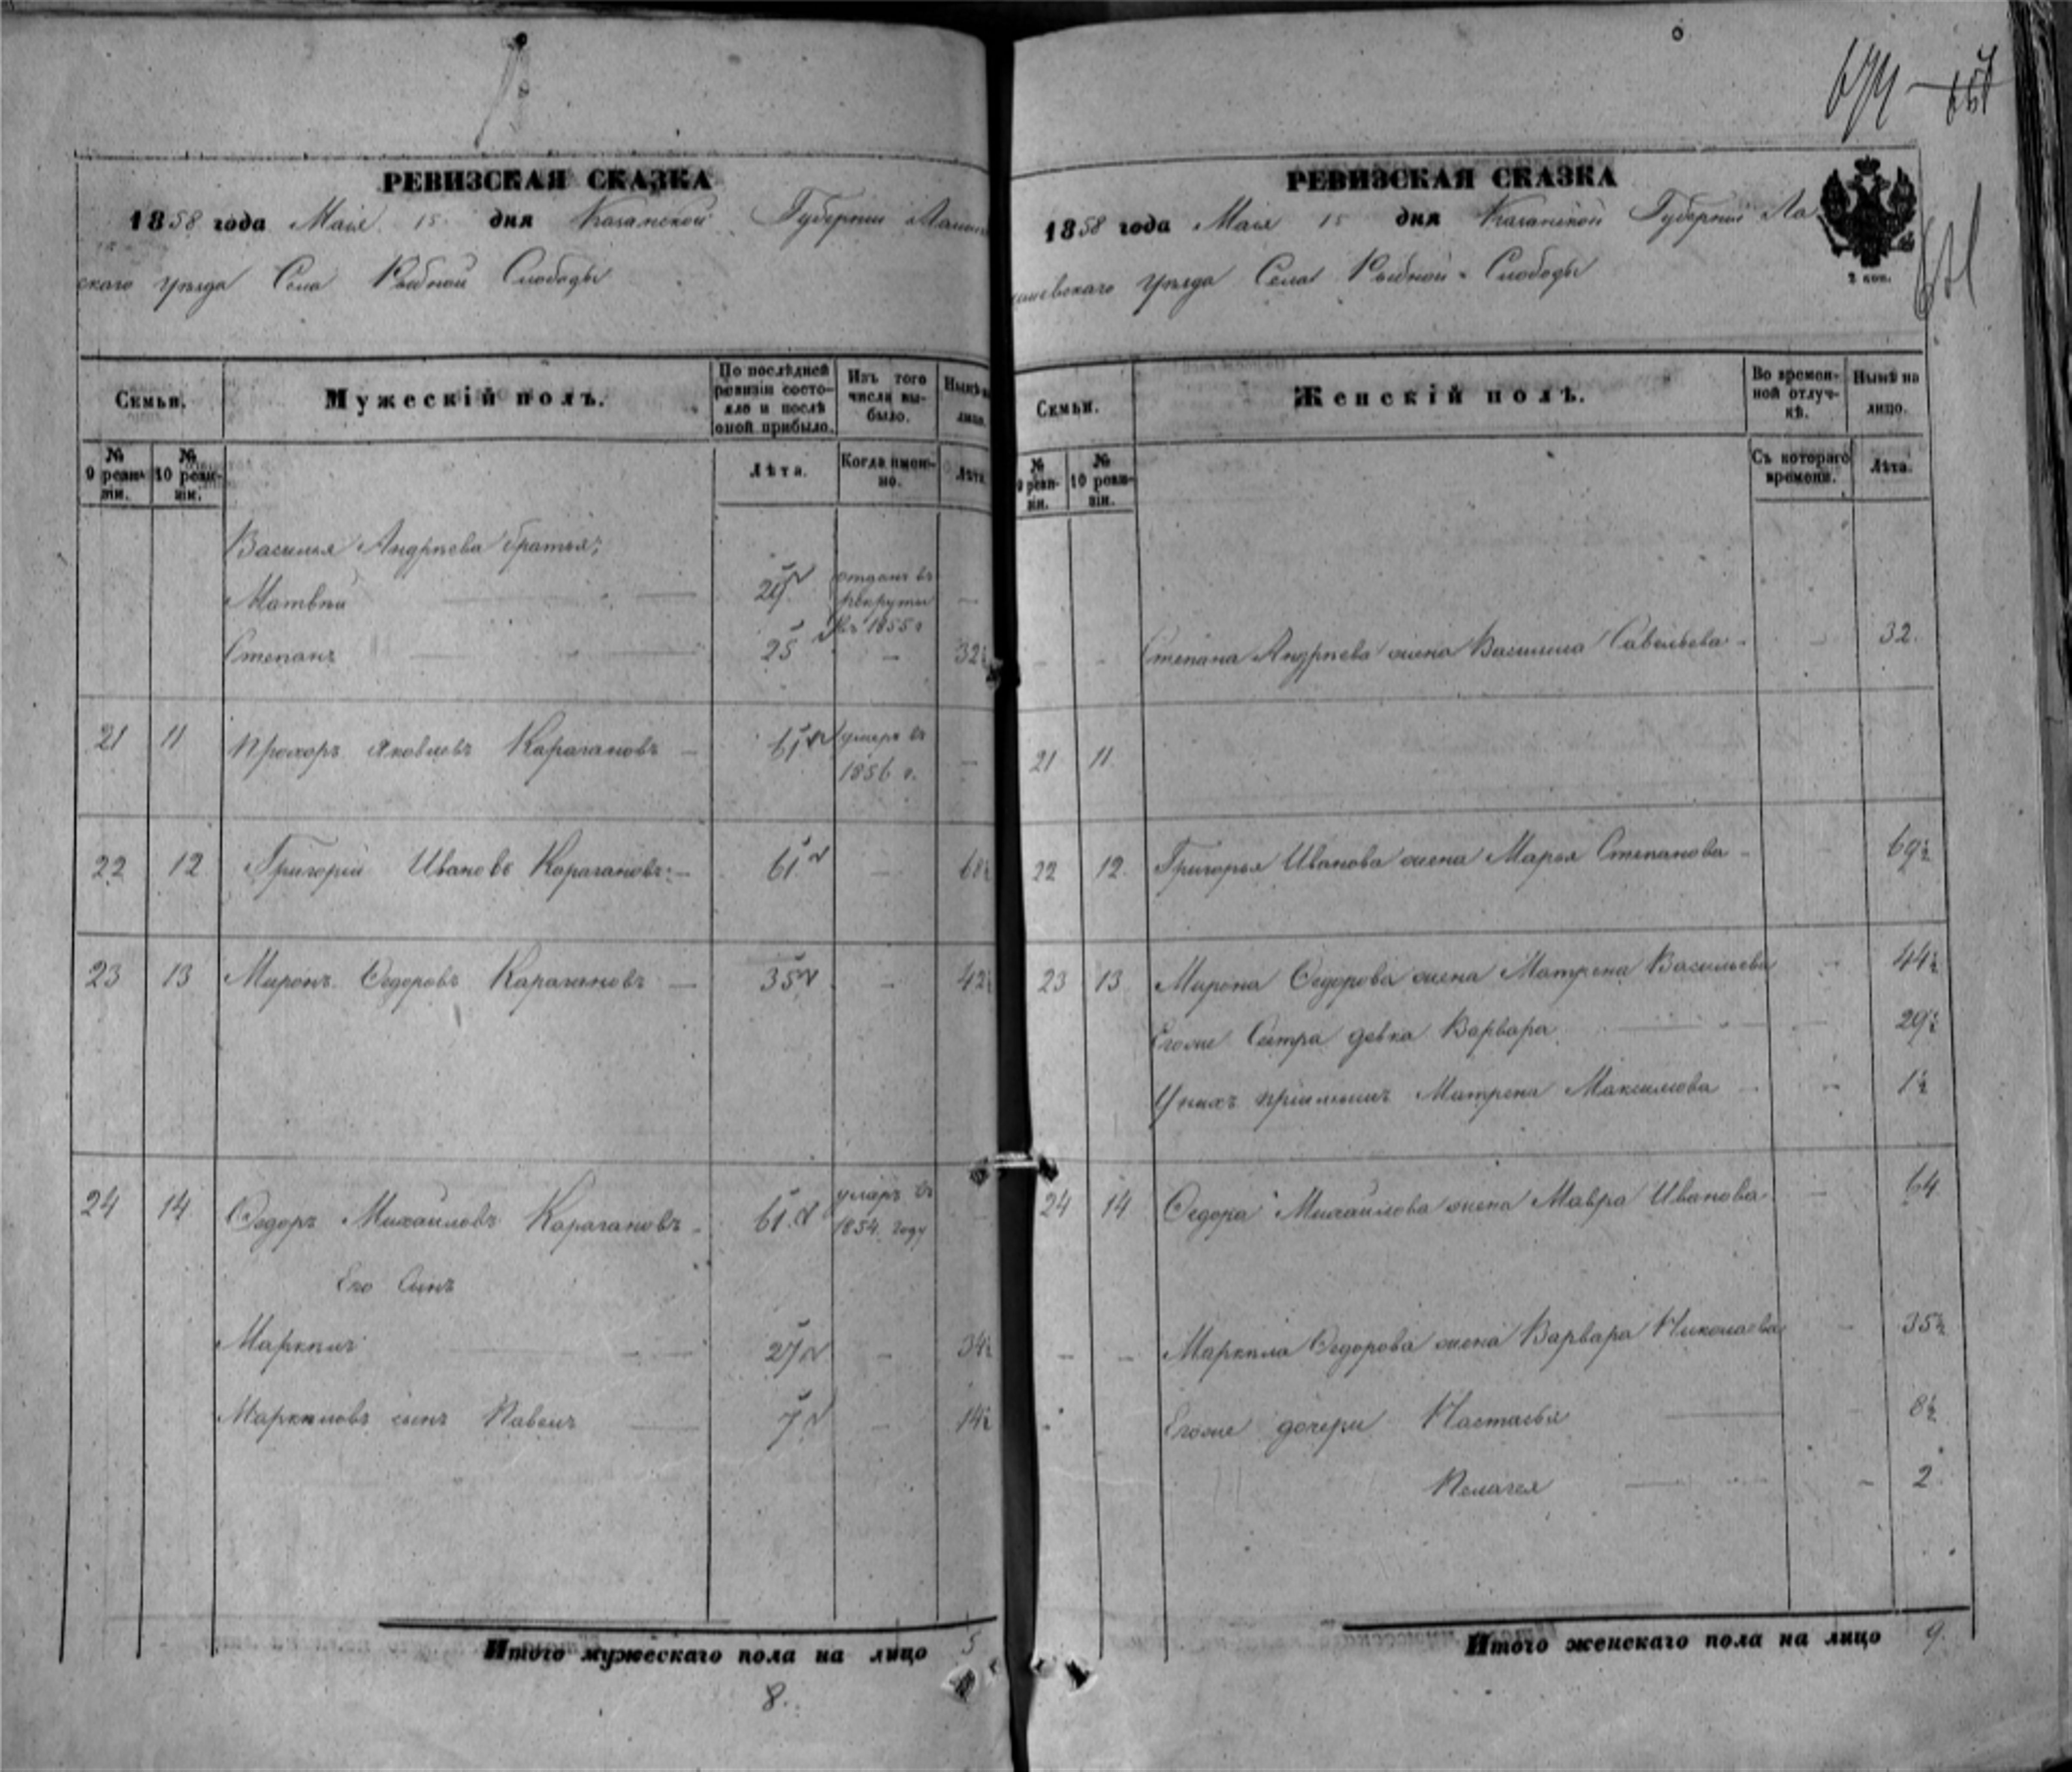 674
РЕВИЗСКАЯ СКАЗКА
1858 года Маія 15 дня Казанской Губерніи Лаишев
скаго уѣзда Села Рыбной Слободы
Семьи.
Мужескій полъ.
По послѣдней ревизіи состояло и послѣ оной прибыло.
Изъ того числа выбыло.
Нынѣ на лицо.
№ 9 ревизіи.
№ 10 ревизіи.
Лѣта.
Когда именно.
Лѣта.
Василья Андрѣева братья;
Матвѣй 29 отданъ въ рекруты въ 1855 г —
Степанъ 25 — 32½
21 11 Прохоръ Яковлевъ Карагановъ — 61 умеръ въ 1856 г. —
22 12 Григорій Ивановъ Карагановъ — 61 — 68½
23 13 Миронъ Ѳедоровъ Карагановъ — 35 — 42½
24 14 Ѳедоръ Михайловъ Карагановъ — 61 умеръ въ 1854 году
Его Сынъ
Маркѣлъ 27 — 34½
Маркѣловъ сынъ Павелъ 7 — 14½
Итого мужескаго пола на лицо 5
8.
РЕВИЗСКАЯ СКАЗКА
1858 года Маія 15 дня Казанской Губерніи Ла
ишевскаго уѣзда Села Рыбной Слободы
2 коп.
Семьи.
Женскій полъ.
Во временной отлучкѣ.
Нынѣ на лицо.
№ 9 ревизіи.
№ 10 ревизіи.
Съ котораго времени.
Лѣта.
— — Степана Андрѣева жена Василиса Савельева — — 32.
21 11
22 12. Григорья Иванова жена Марья Степанова — — 69½
23 13 Мирона Ѳедорова жена Матрена Васильева — 44½
Егоже Сестра девка Варвара — 29½
У нихъ пріемышъ Матрена Максимова — — 1½
24 14 Ѳедора Михайлова жена Мавра Иванова — 64
— — Маркѣла Ѳедорова жена Варвара Николаева — 35½
Егоже дочери Настасья — 8½
Пелагея — 2
Итого женскаго пола на лицо 9.